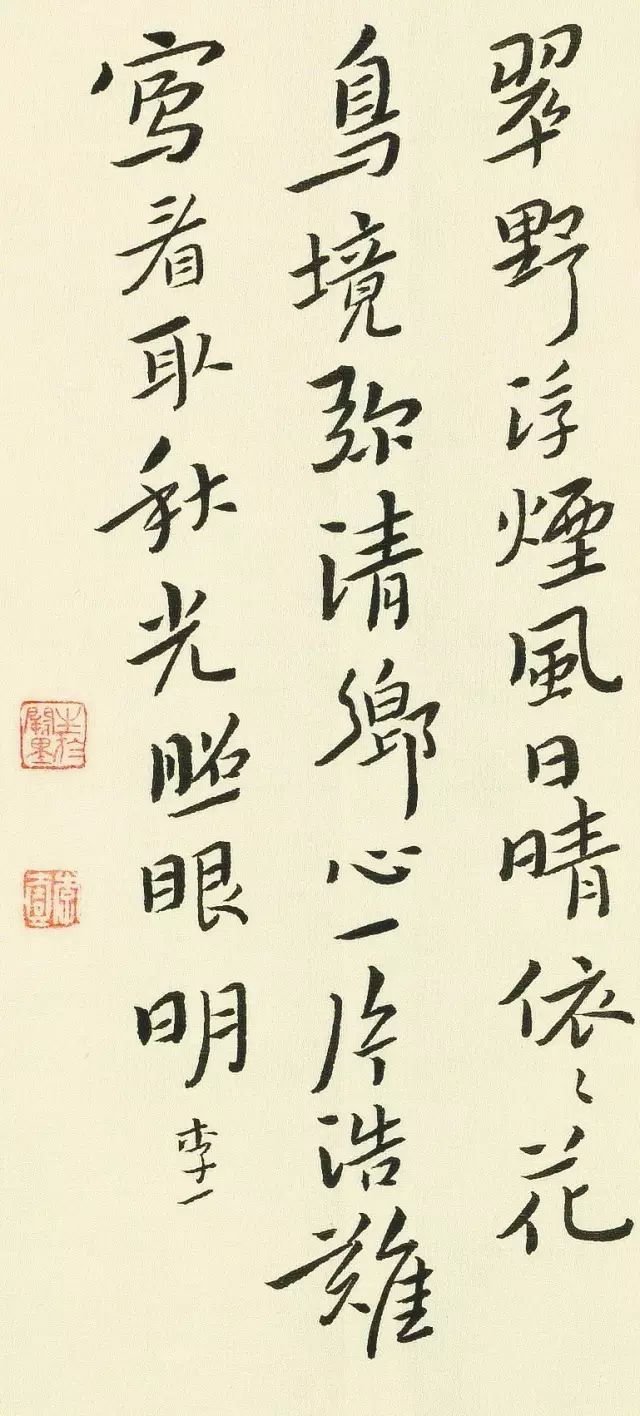 翠野浮煙風日晴依〻花
鳥境弥清鄉心一片浩難
寫看取秋光照眼明
李一